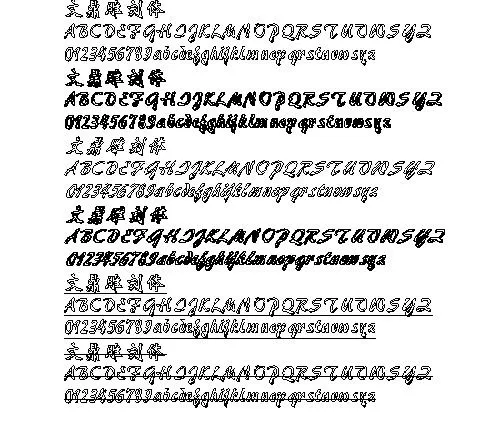 文鼎雕刻体
ABCDEFGHIJKLMNOPQRSTUVWXYZ
0123456789abcdefghijklmnopqrstuvwxyz
文鼎雕刻体
ABCDEFGHIJKLMNOPQRSTUVWXYZ
0123456789abcdefghijklmnopqrstuvwxyz
文鼎雕刻体
ABCDEFGHIJKLMNOPQRSTUVWXYZ
0123456789abcdefghijklmnopqrstuvwxyz
文鼎雕刻体
ABCDEFGHIJKLMNOPQRSTUVWXYZ
0123456789abcdefghijklmnopqrstuvwxyz
文鼎雕刻体
ABCDEFGHIJKLMNOPQRSTUVWXYZ
0123456789abcdefghijklmnopqrstuvwxyz
文鼎雕刻体
ABCDEFGHIJKLMNOPQRSTUVWXYZ
0123456789abcdefghijklmnopqrstuvwxyz